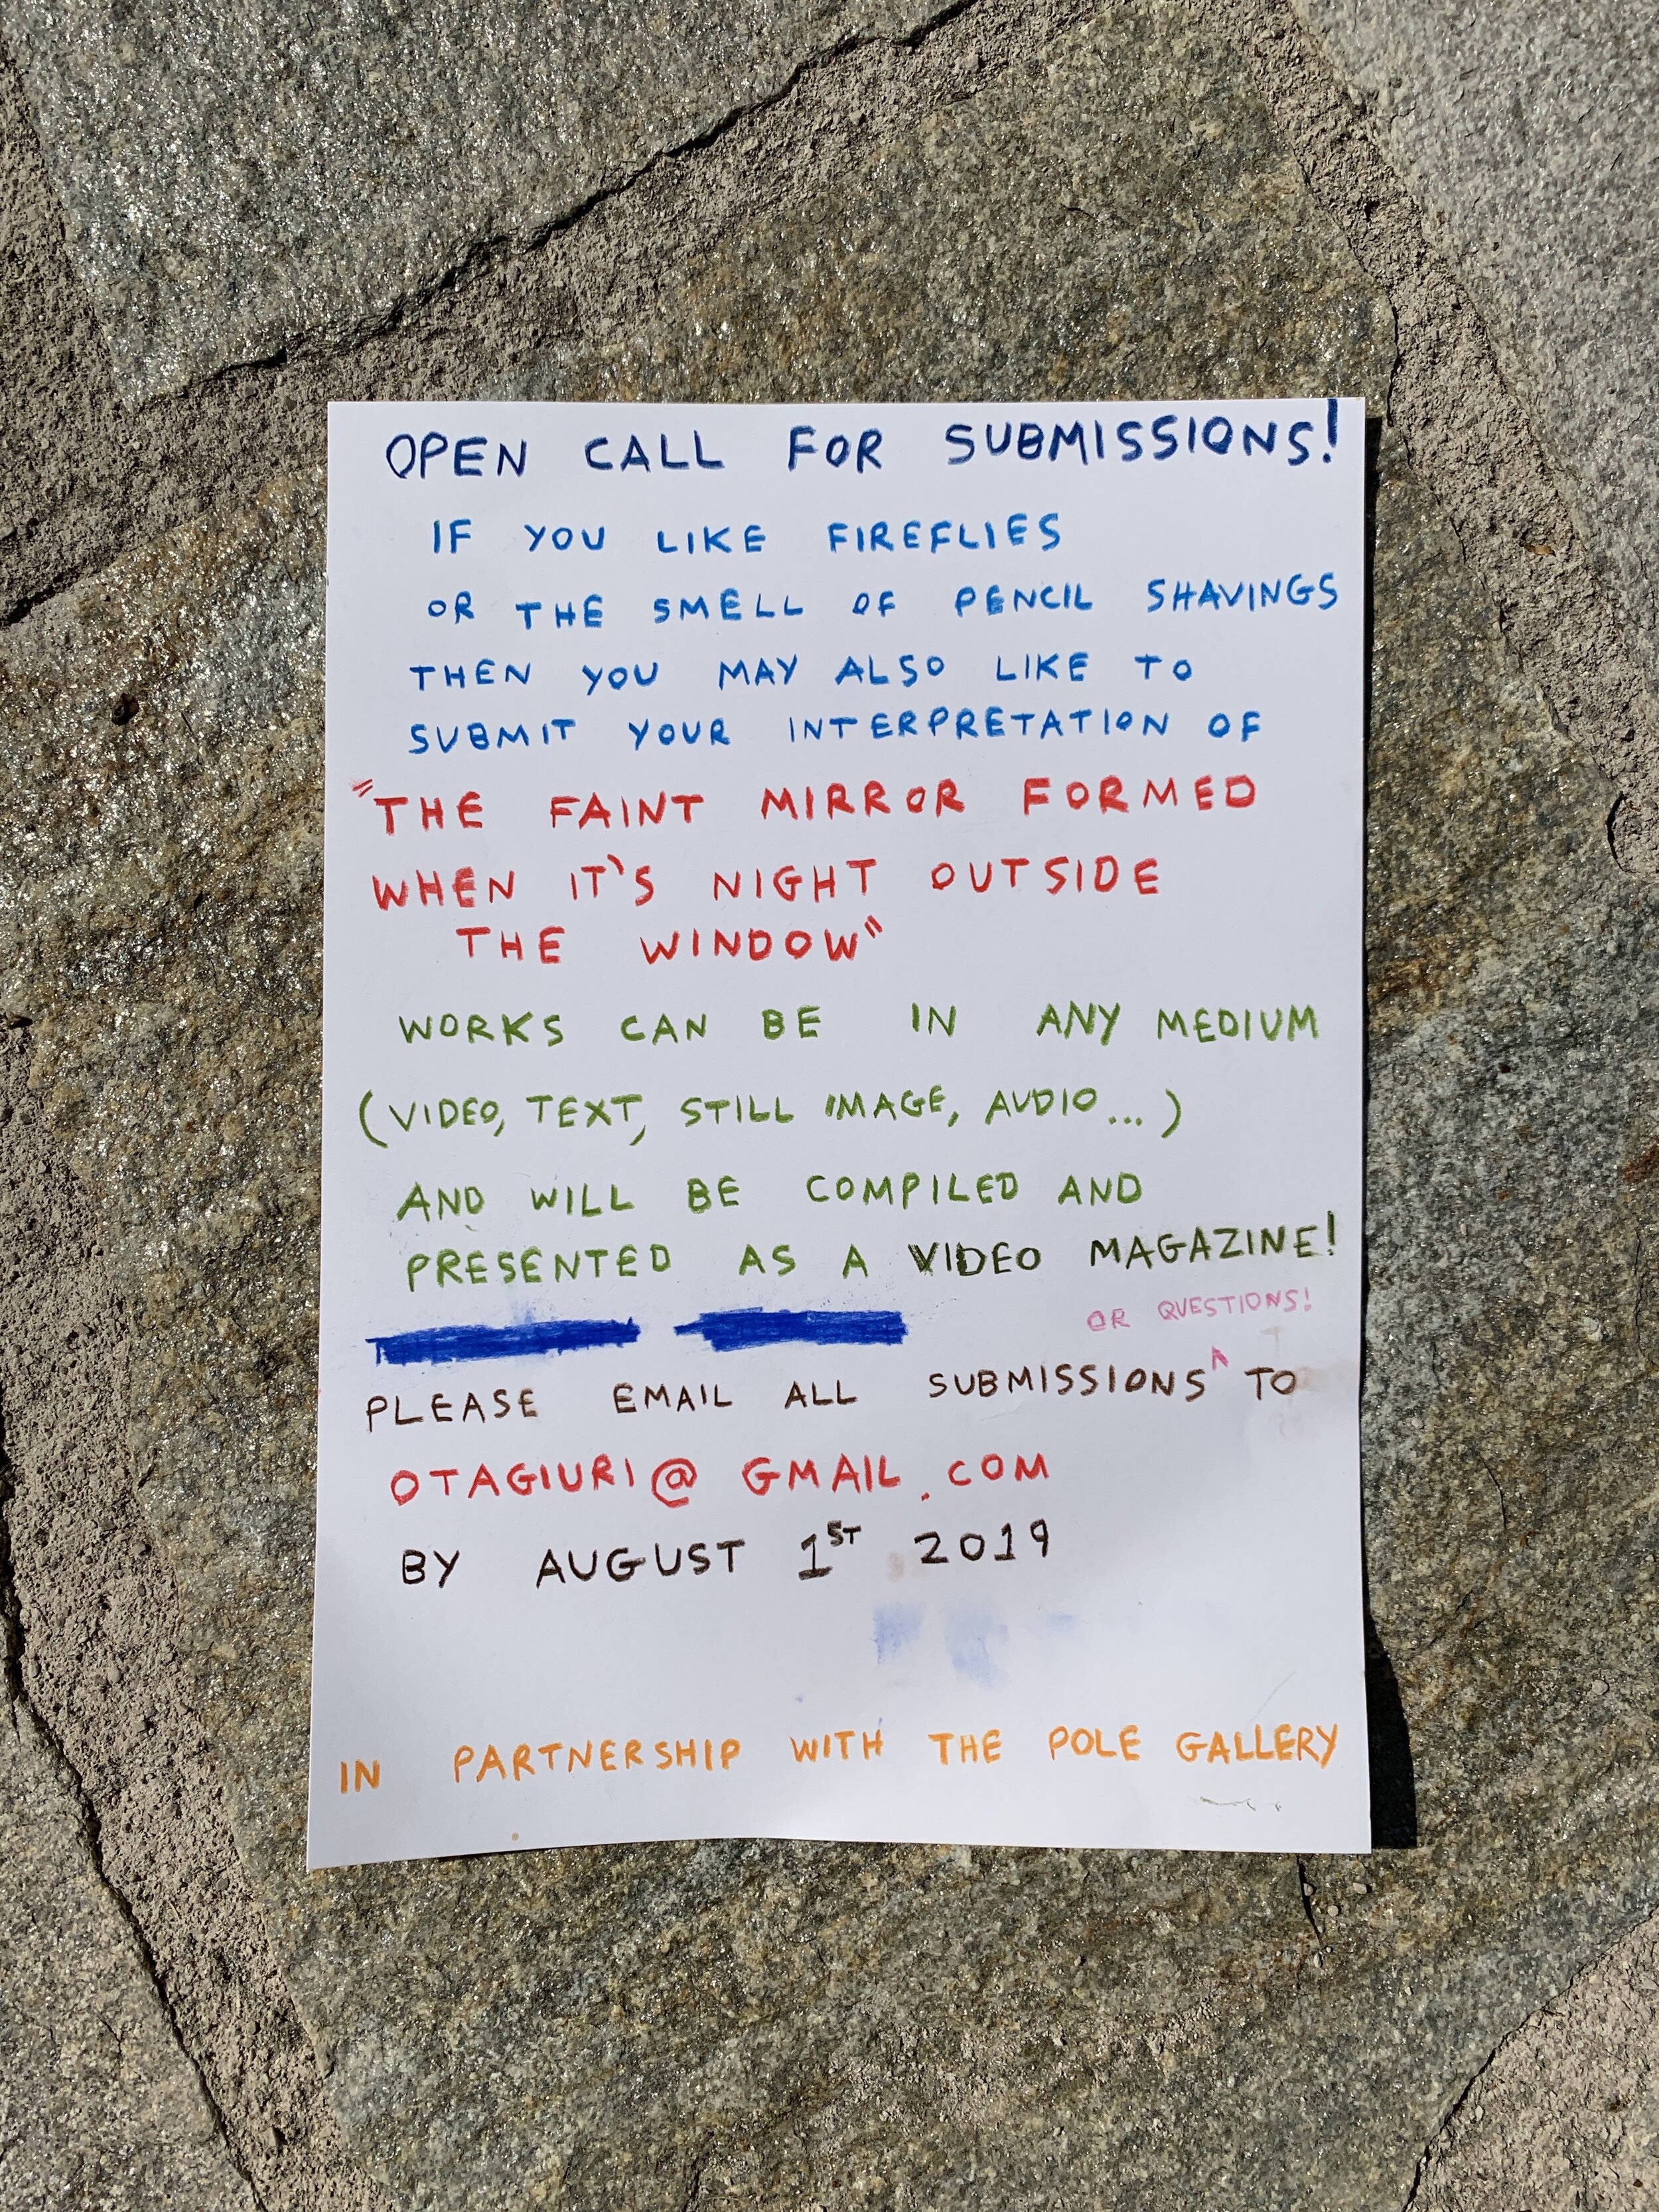 OPEN CALL FOR SUBMISSIONS!
IF YOU LIKE FIREFLIES
OR THE SMELL OF PENCIL SHAVINGS
THEN YOU MAY ALSO LIKE TO
SUBMIT YOUR INTERPRETATION OF
"THE FAINT MIRROR FORMED
WHEN IT'S NIGHT OUTSIDE
THE WINDOW"
WORKS CAN BE IN ANY MEDIUM
(VIDEO, TEXT, STILL IMAGE, AUDIO...)
AND WILL BE COMPILED AND
PRESENTED AS A VIDEO MAGAZINE!
OR QUESTIONS!
PLEASE EMAIL ALL SUBMISSIONS^ TO
OTAGIURI@GMAIL.COM
BY AUGUST 1ST 2019
IN PARTNERSHIP WITH THE POLE GALLERY